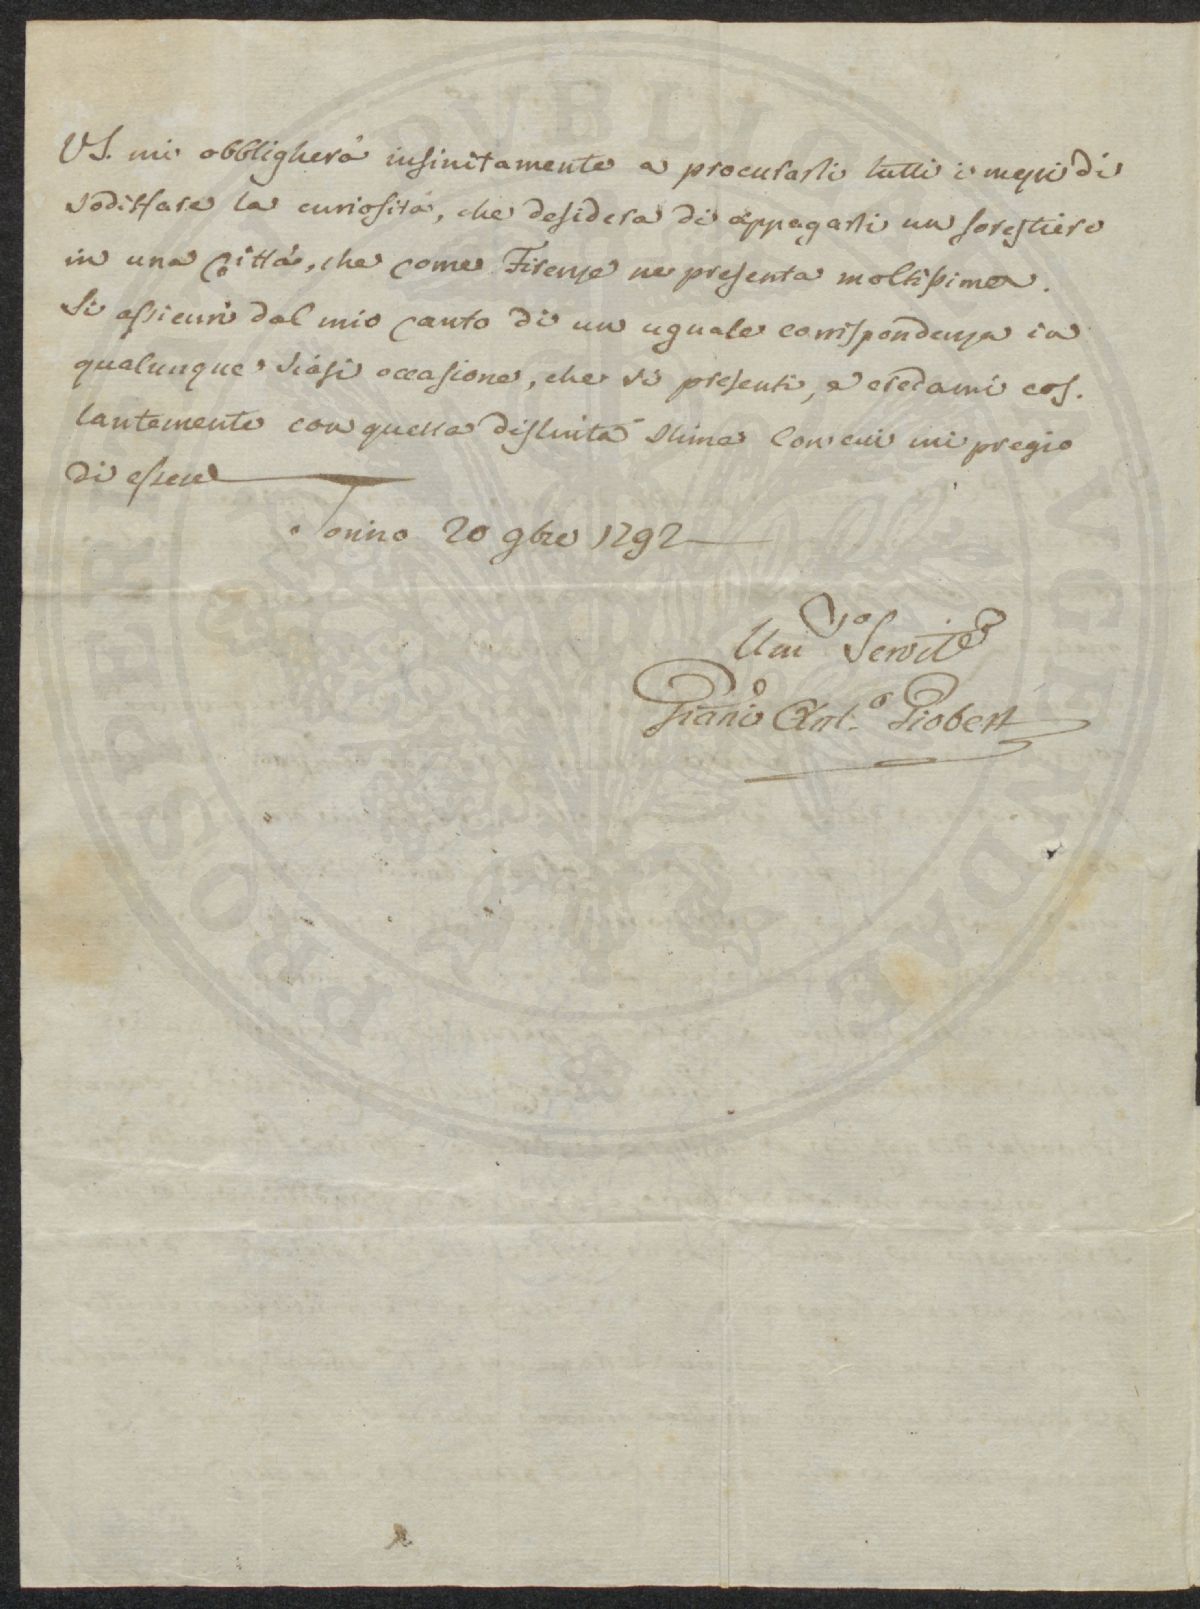 VS. mi obbligherà infinitamente a procurarli tutti i mezzi di
sodisfare la curiosità, che desidera di appagarsi un forestiere
in una Città, che come Firenze ne presenta moltissime.
Si assicuri dal mio canto di un uguale corrispondenza in
qualunque siasi occasione, che si presenti, e credami cos.
tantemente con quella distinta stima con cui mi pregio
di essere
Torino 20 9bre 1792
Um.o Servit.e
Antº. Giobert
PVBLI
PROSPERI
VGENDAE